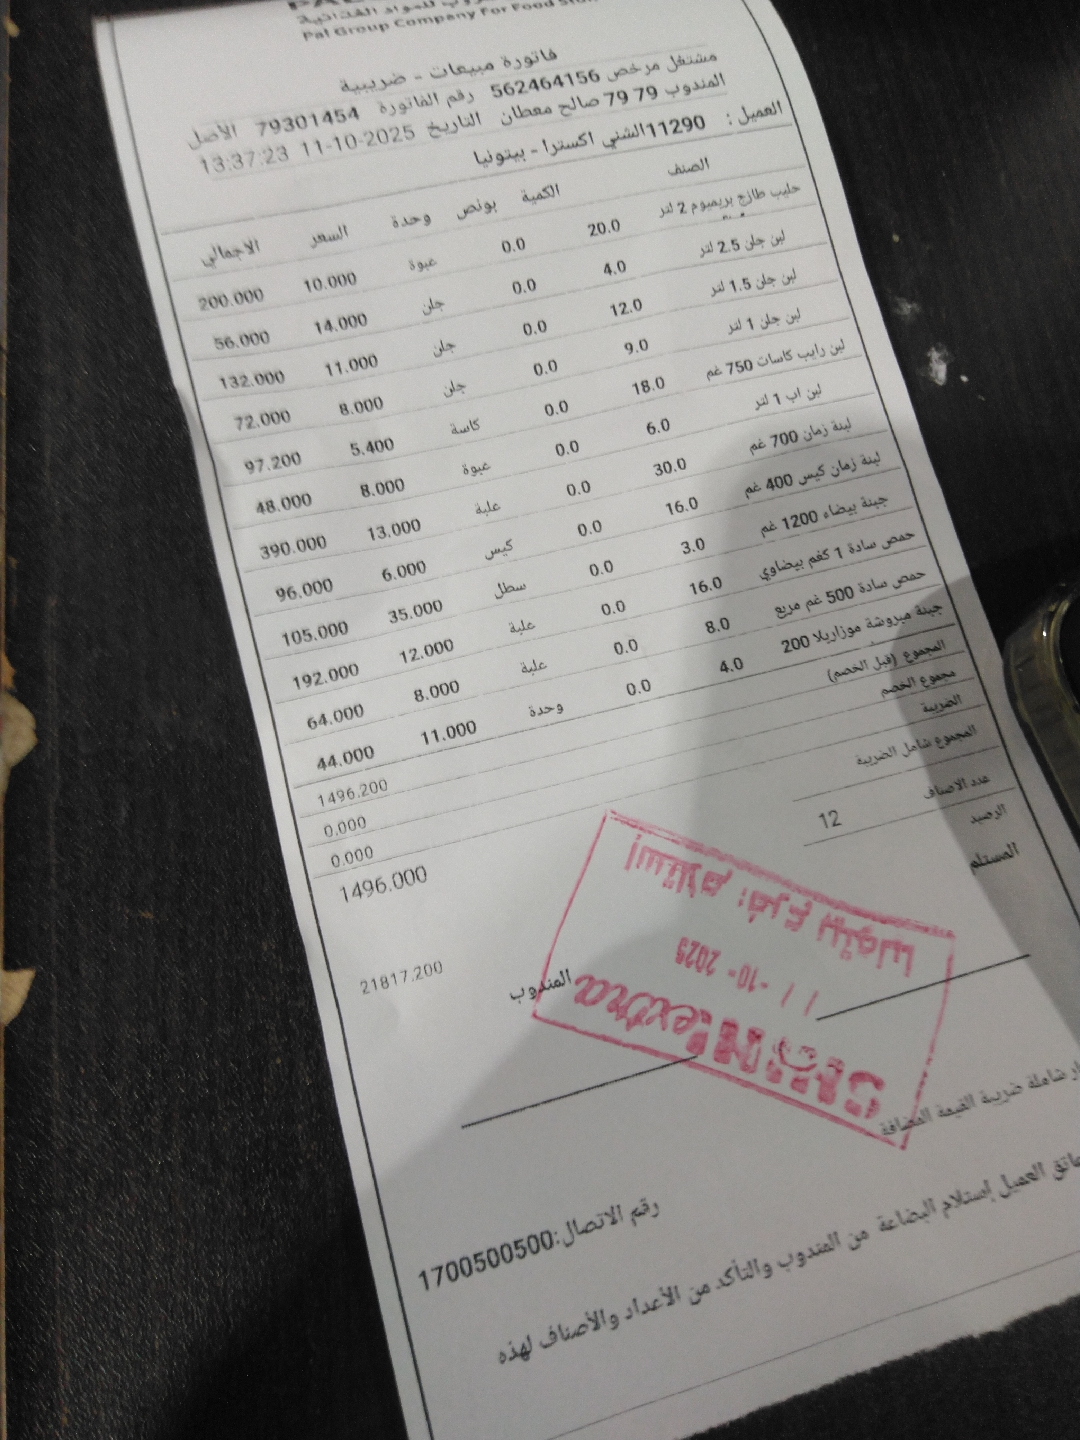 Pal Group Company For Food
فاتورة مبيعات - ضريبية
مشتغل مرخص 562464156 رقم الفاتورة 79301454 الأصل
المندوب 79 79 صالح معطان التاريخ 11-10-2025 13:37:23
العميل : 11290الشني اكسترا - بيتونيا
الصنف الكمية بونص وحدة السعر الاجمالي
حليب طازج بريميوم 2 لتر 20.0 0.0 عبوة 10.000 200.000
لبن جلن 2.5 لتر 4.0 0.0 جلن 14.000 56.000
لبن جلن 1.5 لتر 12.0 0.0 جلن 11.000 132.000
لبن جلن 1 لتر 9.0 0.0 جلن 8.000 72.000
لبن رايب كاسات 750 غم 18.0 0.0 كاسة 5.400 97.200
لبن اب 1 لتر 6.0 0.0 عبوة 8.000 48.000
لبنة زمان 700 غم 30.0 0.0 علبة 13.000 390.000
لبنة زمان كيس 400 غم 16.0 0.0 كيس 6.000 96.000
جبنة بيضاء 1200 غم 3.0 0.0 سطل 35.000 105.000
حمص سادة 1 كغم بيضاوي 16.0 0.0 علبة 12.000 192.000
حمص سادة 500 غم مربع 8.0 0.0 علبة 8.000 64.000
جبنة مبروشة موزاريلا 200 4.0 0.0 وحدة 11.000 44.000
المجموع (قبل الخصم) 1496.200
مجموع الخصم 0.000
الضريبة 0.000
المجموع شامل الضريبة 1496.000
عدد الاصناف 12
الرصيد 21817.200
المستلم
المندوب
إستلام : فرع بيتونيا
11 -10- 2025
SHINI extra
شاملة ضريبة القيمة المضافة
رقم الاتصال:1700500500
العميل إستلام البضاعة من المندوب والتأكد من الأعداد والأصناف لهذه